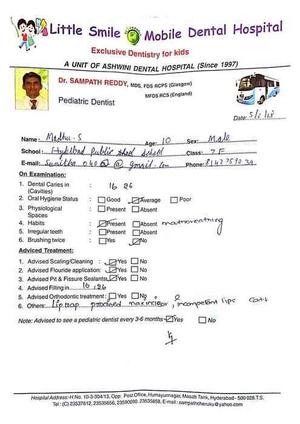 Little Smile Mobile Dental Hospital
Exclusive Dentistry for kids
A UNIT OF ASHWINI DENTAL HOSPITAL (Since 1997)
Dr. SAMPATH REDDY, MDS, FDS RCPS (Glasgow)
MFDS RCS (England)
Pediatric Dentist
Date:
Name: Madhu.S Age: 10 Sex: Male
School: Hyderabad Public School Class:
E-mail: @gmail.com Phone:
On Examination:
1. Dental Caries in (Cavities) : 16 26
2. Oral Hygiene Status : Good Average Poor
3. Physiological Spaces : Present Absent
4. Habits : Present Absent
5. Irregular teeth : Present Absent
6. Brushing twice : Yes No
Advised Treatment:
1. Advised Scaling/Cleaning : Yes No
2. Advised Flouride application : Yes No
3. Advised Pit & Fissure Sealants Yes No
4. Advised Filling in 16,26
5. Advised Orthodontic treatment : Yes No
6. Others: incompetent lips
Note: Advised to see a pediatric dentist every 3-6 months Yes No
Hospital Address-H.No. 10-3-304/13, Opp. Post Office, Humayunnagar, Masab Tank, Hyderabad - 500 028 T.S.